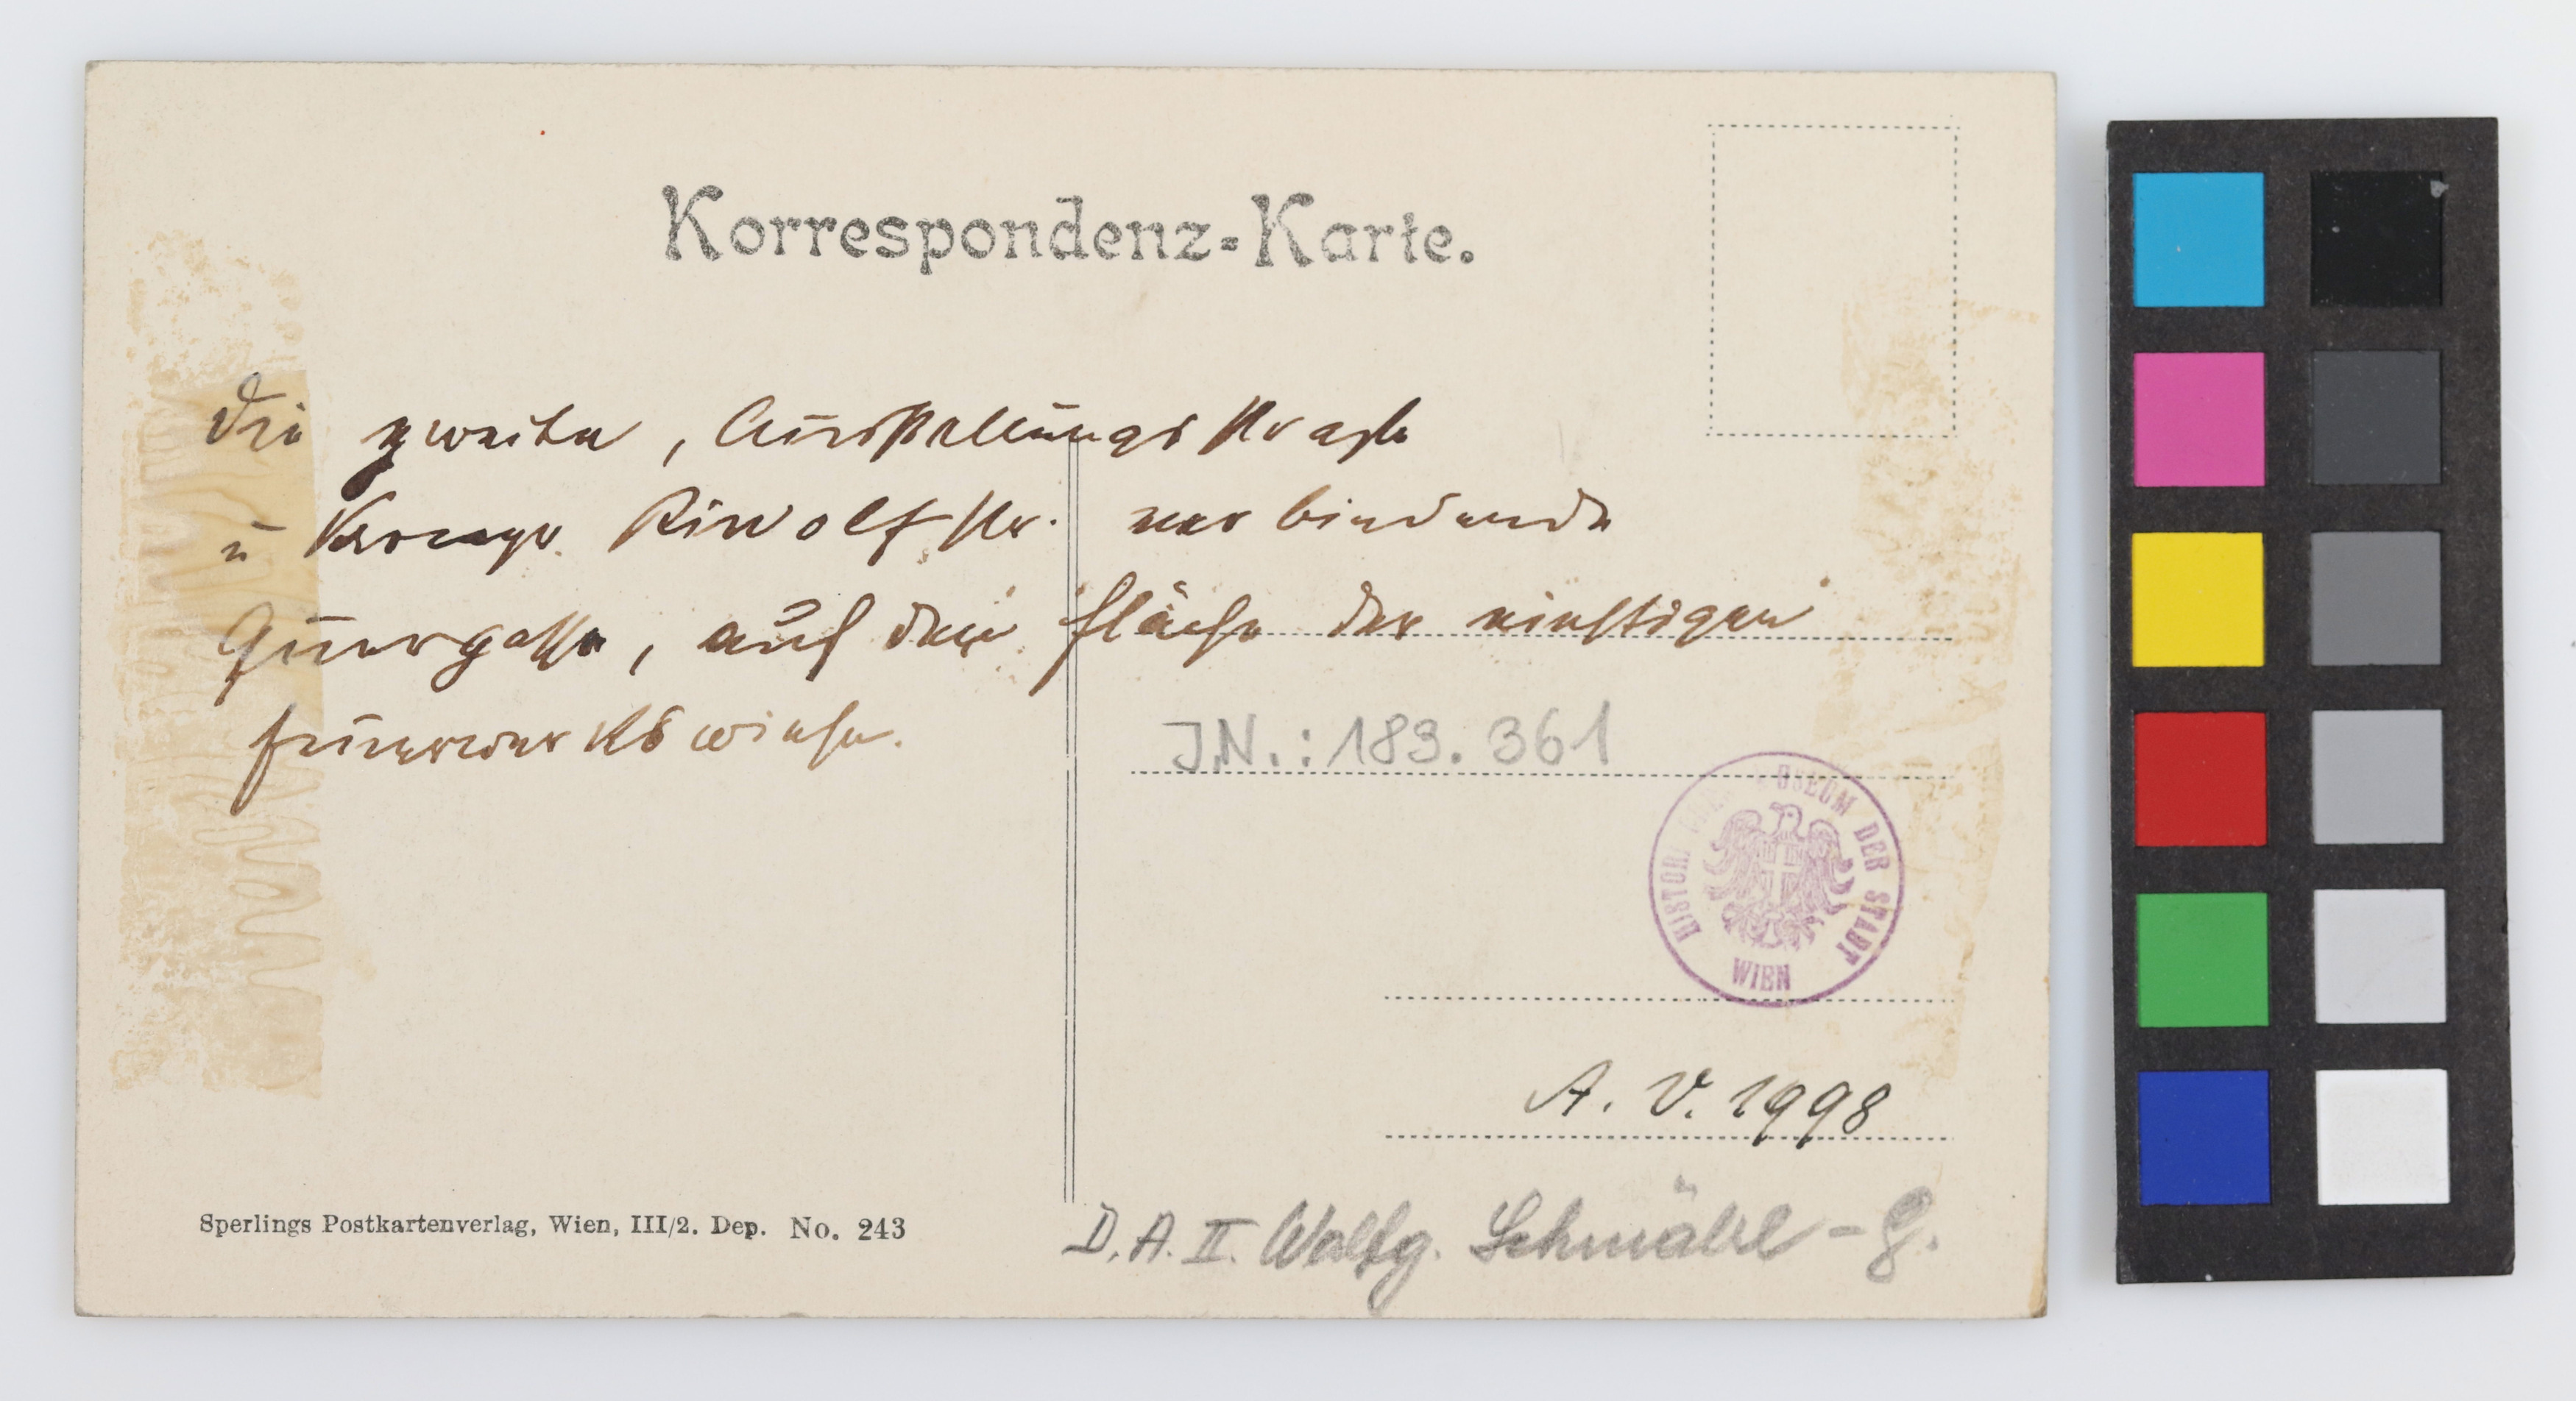 Korrespondenz-Karte.
Die zweite, Ausstellungsstraße
u Kronpr. Rudolfstr. verbindende
Quergasse, auf der Fläche der einstigen
Feuerwerkswiese.
J.N.: 183.361
HISTOR. MUSEUM DER STADT WIEN
A. V. 1998
Sperlings Postkartenverlag, Wien, III/2. Dep. No. 243
D. A. II. Wolfg. Schmälzl - G.